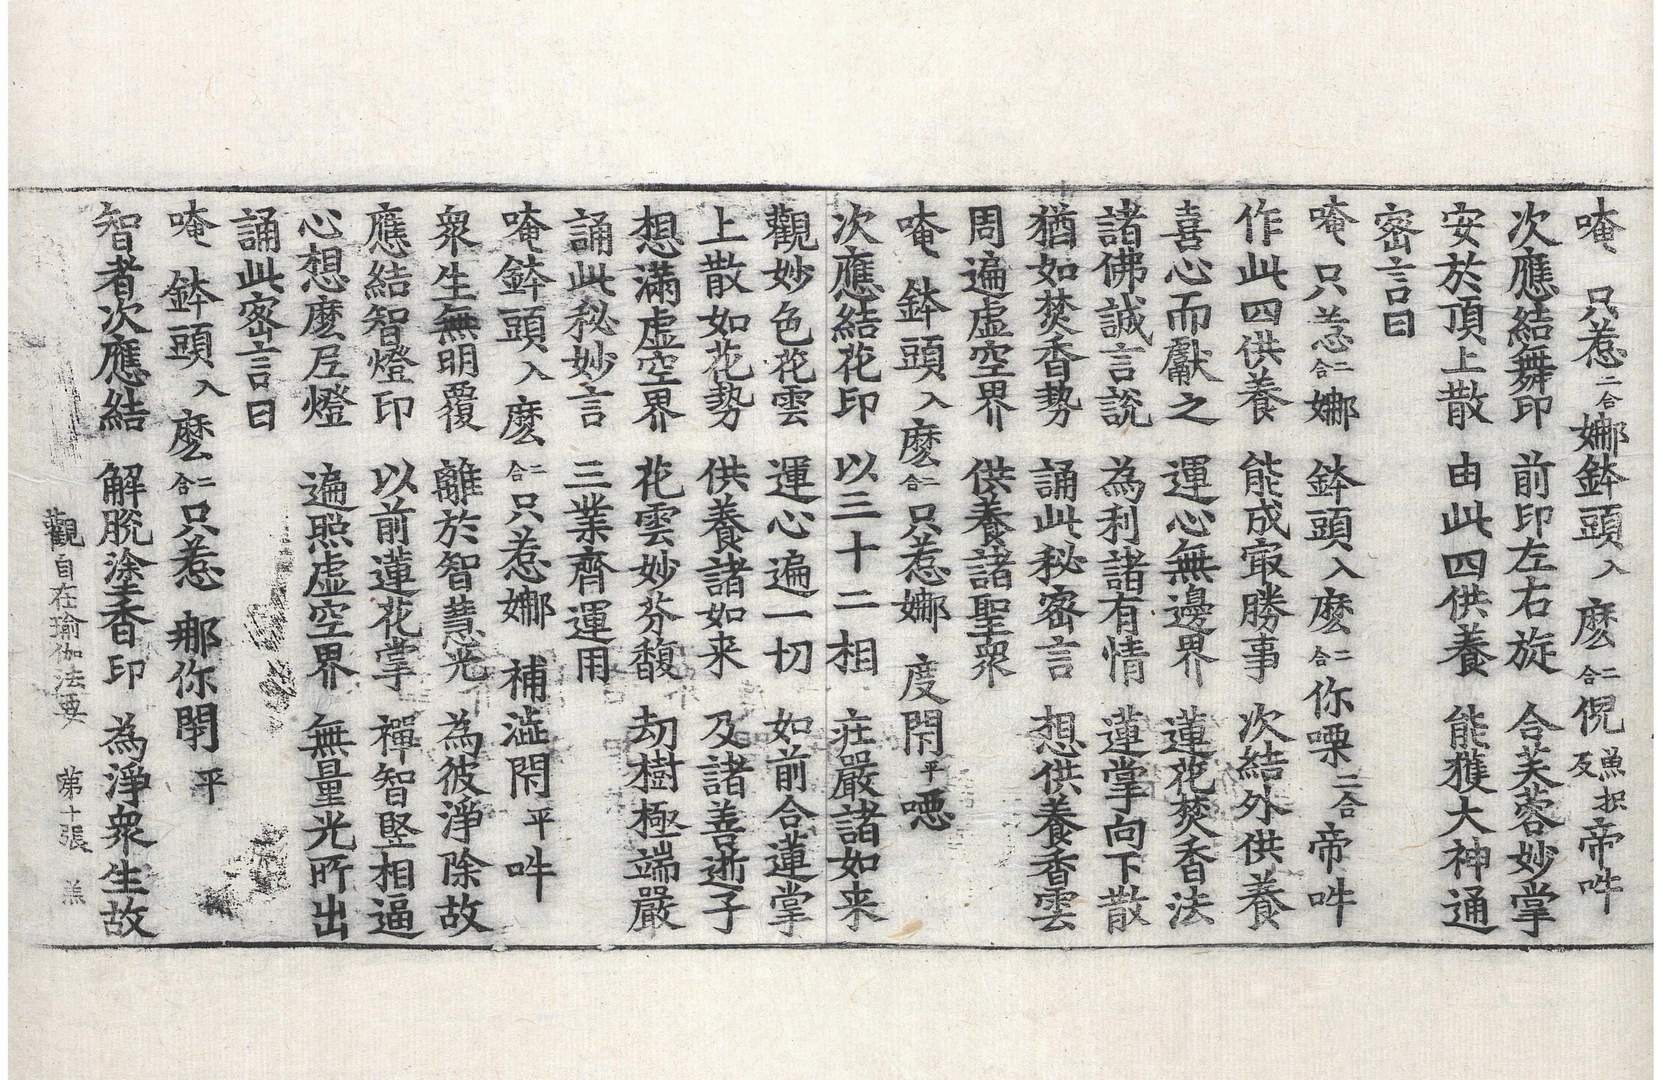 唵 只惹二合娜鉢頭入麽二合倪魚枳反帝吽
次應結舞印 前印左右旋 合芙蓉妙掌
安於頂上散 由此四供養 能獲大神通
密言曰
唵只惹二合娜 鉢頭入麽二合你㗚二合帝吽
作此四供養 能成㝡勝事 次結外供養
喜心而獻之 運心無邊界 蓮花焚香法
諸佛誠言說 為利諸有情 蓮掌向下散
猶如焚香勢 誦此秘密言 想供養香雲
周遍虛空界 供養諸聖衆
唵 鉢頭入麽二合只惹娜 度閇平噁
次應結花印 以三十二相 莊嚴諸如来
觀妙色花雲 運心遍一切 如前合蓮掌
上散如花勢 供養諸如来 及諸善逝子
想滿虛空界 花雲妙芬馥 劫樹極端嚴
誦此秘妙言 三業齊運用
唵鉢頭入麽二合只惹娜 補澁閇平吽
衆生無明覆 離於智慧光 為彼淨除故
應結智燈印 以前蓮花掌 禪智竪相逼
心想麽𡰱燈 遍照虛空界 無量光所出
誦此密言曰
唵 鉢頭入麽二合只惹 那你閇平
智者次應結 解脫塗香印 為淨衆生故
觀自在瑜伽法要 第十張 羔